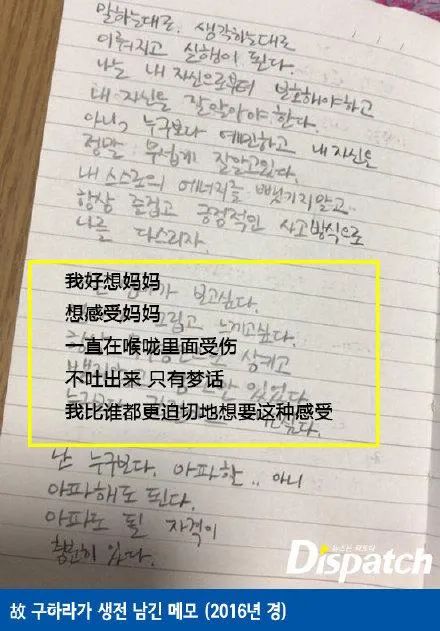 말하는대로. 생각하는대로
이뤄지고 실행이 된다.
나는 내 자신으로부터 보호해야하고
내 자신을 잘알아야 한다.
아니, 누구보다 예민하고 내 자신을
정말 무섭게 잘알고있다.
내 스스로의 에너지를 뺏기지말고..
항상 즐겁고 긍정적인 사고방식으로
나를 다스리자.
我好想妈妈
가 보고싶다.
想感受妈妈
그립고 느끼고싶다.
一直在喉咙里面受伤
삼키고
不吐出来 只有梦话
있었다
我比谁都更迫切地想要这种感受
난 누구보다. 아파할.. 아니
아파해도 된다.
아파도 될 자격이
충분히 있다.
뉴스는 팩트다
Dispatch
故 구하라가 생전 남긴 메모 (2016년 경)